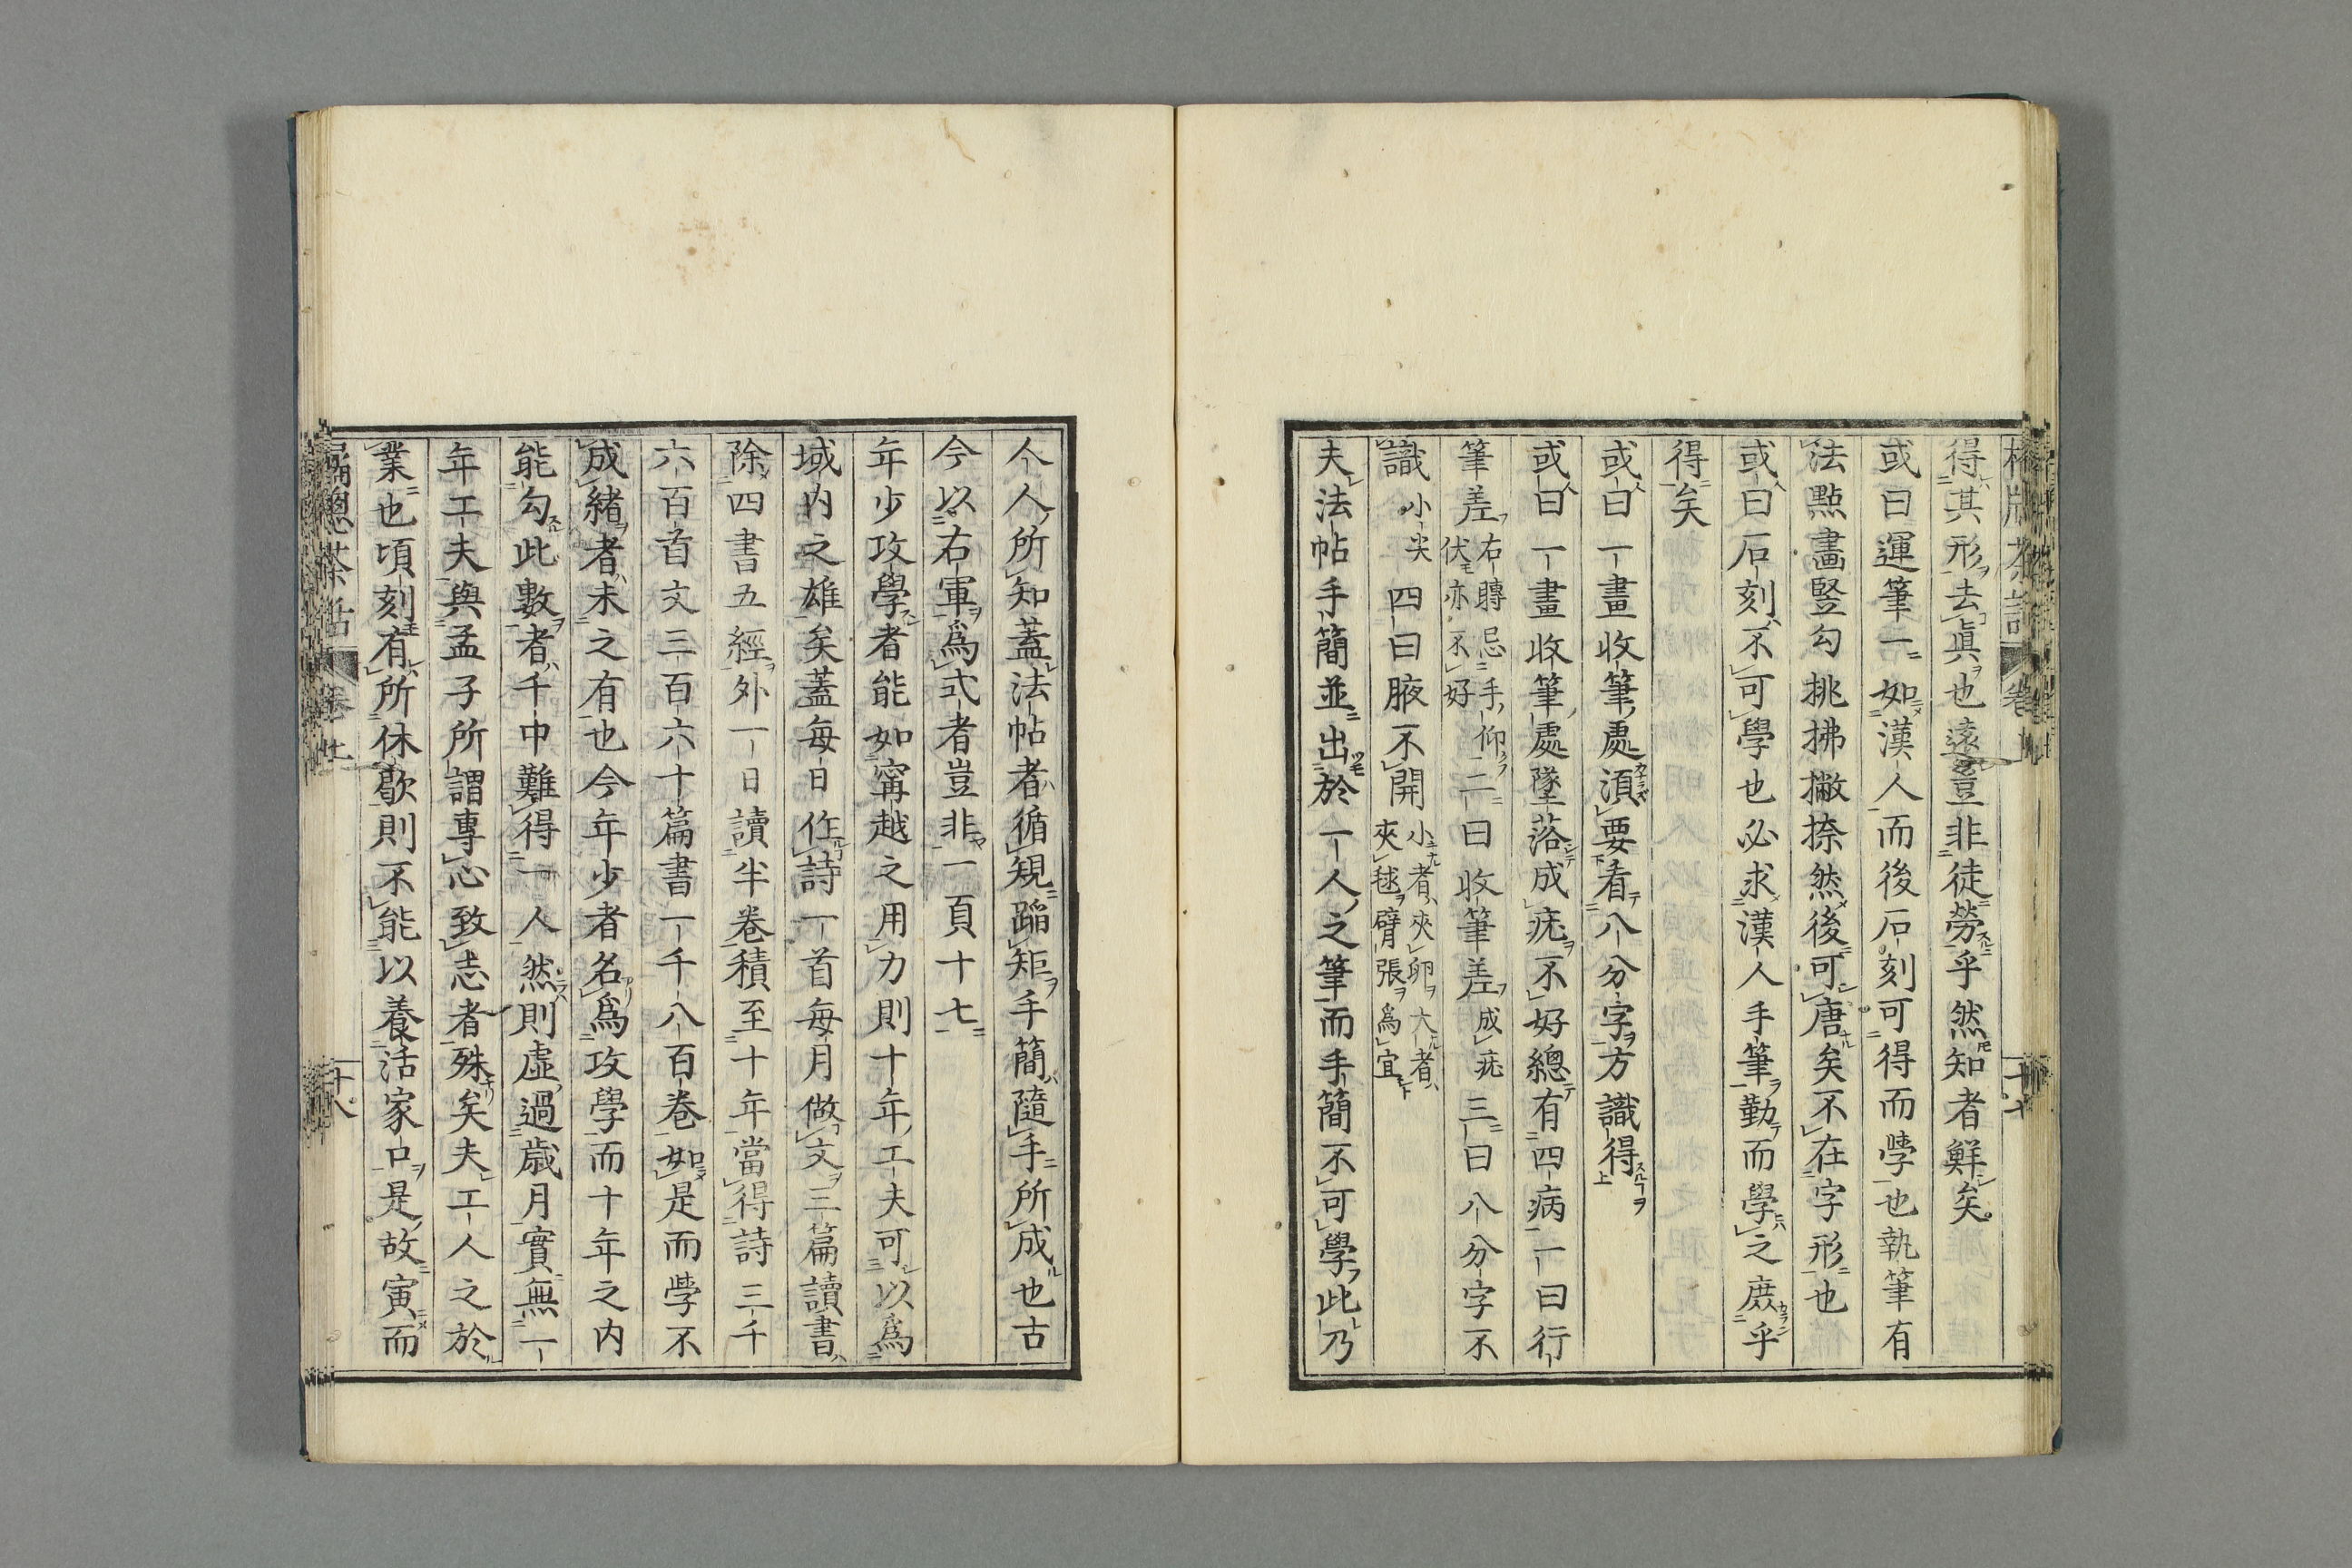 得其形去眞也遠豈非徒勞乎然知者鮮矣
或曰運筆一如漢人而後石刻可得而學也執筆有
法點畫竪勾挑拂撇捺然後可唐矣不在字形也
或曰石刻不可學也必求漢人手筆勤而學之庶乎
得矣
或曰一畫收筆處須要看八分字方識得
或曰一畫收筆處墜落成疣不好總有四病一曰行
筆差右轉忌手仰伏亦不好二曰收筆差成疣三曰八分字不
識小尖四曰腋不開小者夾卵大者夾毬臂張爲宜
夫法帖手簡並出於一人之筆而手簡不可學此乃
人人所知蓋法帖者循規蹈矩手簡隨手所成也古
今以右軍爲式者豈非一頁十七
年少攻學者能如甯越之用力則十年工夫可以爲
域内之雄矣蓋每日作詩一首每月做文三篇讀書
除四書五經外一日讀半卷積至十年當得詩三千
六百首文三百六十篇書一千八百卷如是而學不
成緒者未之有也今年少者名爲攻學而十年之内
能勾此數者千中難得一人然則虛過歳月實無一
年工夫與孟子所謂專心致志者殊矣夫工人之於
業也頃刻有所休歇則不能以養活家口是故寅而
十八